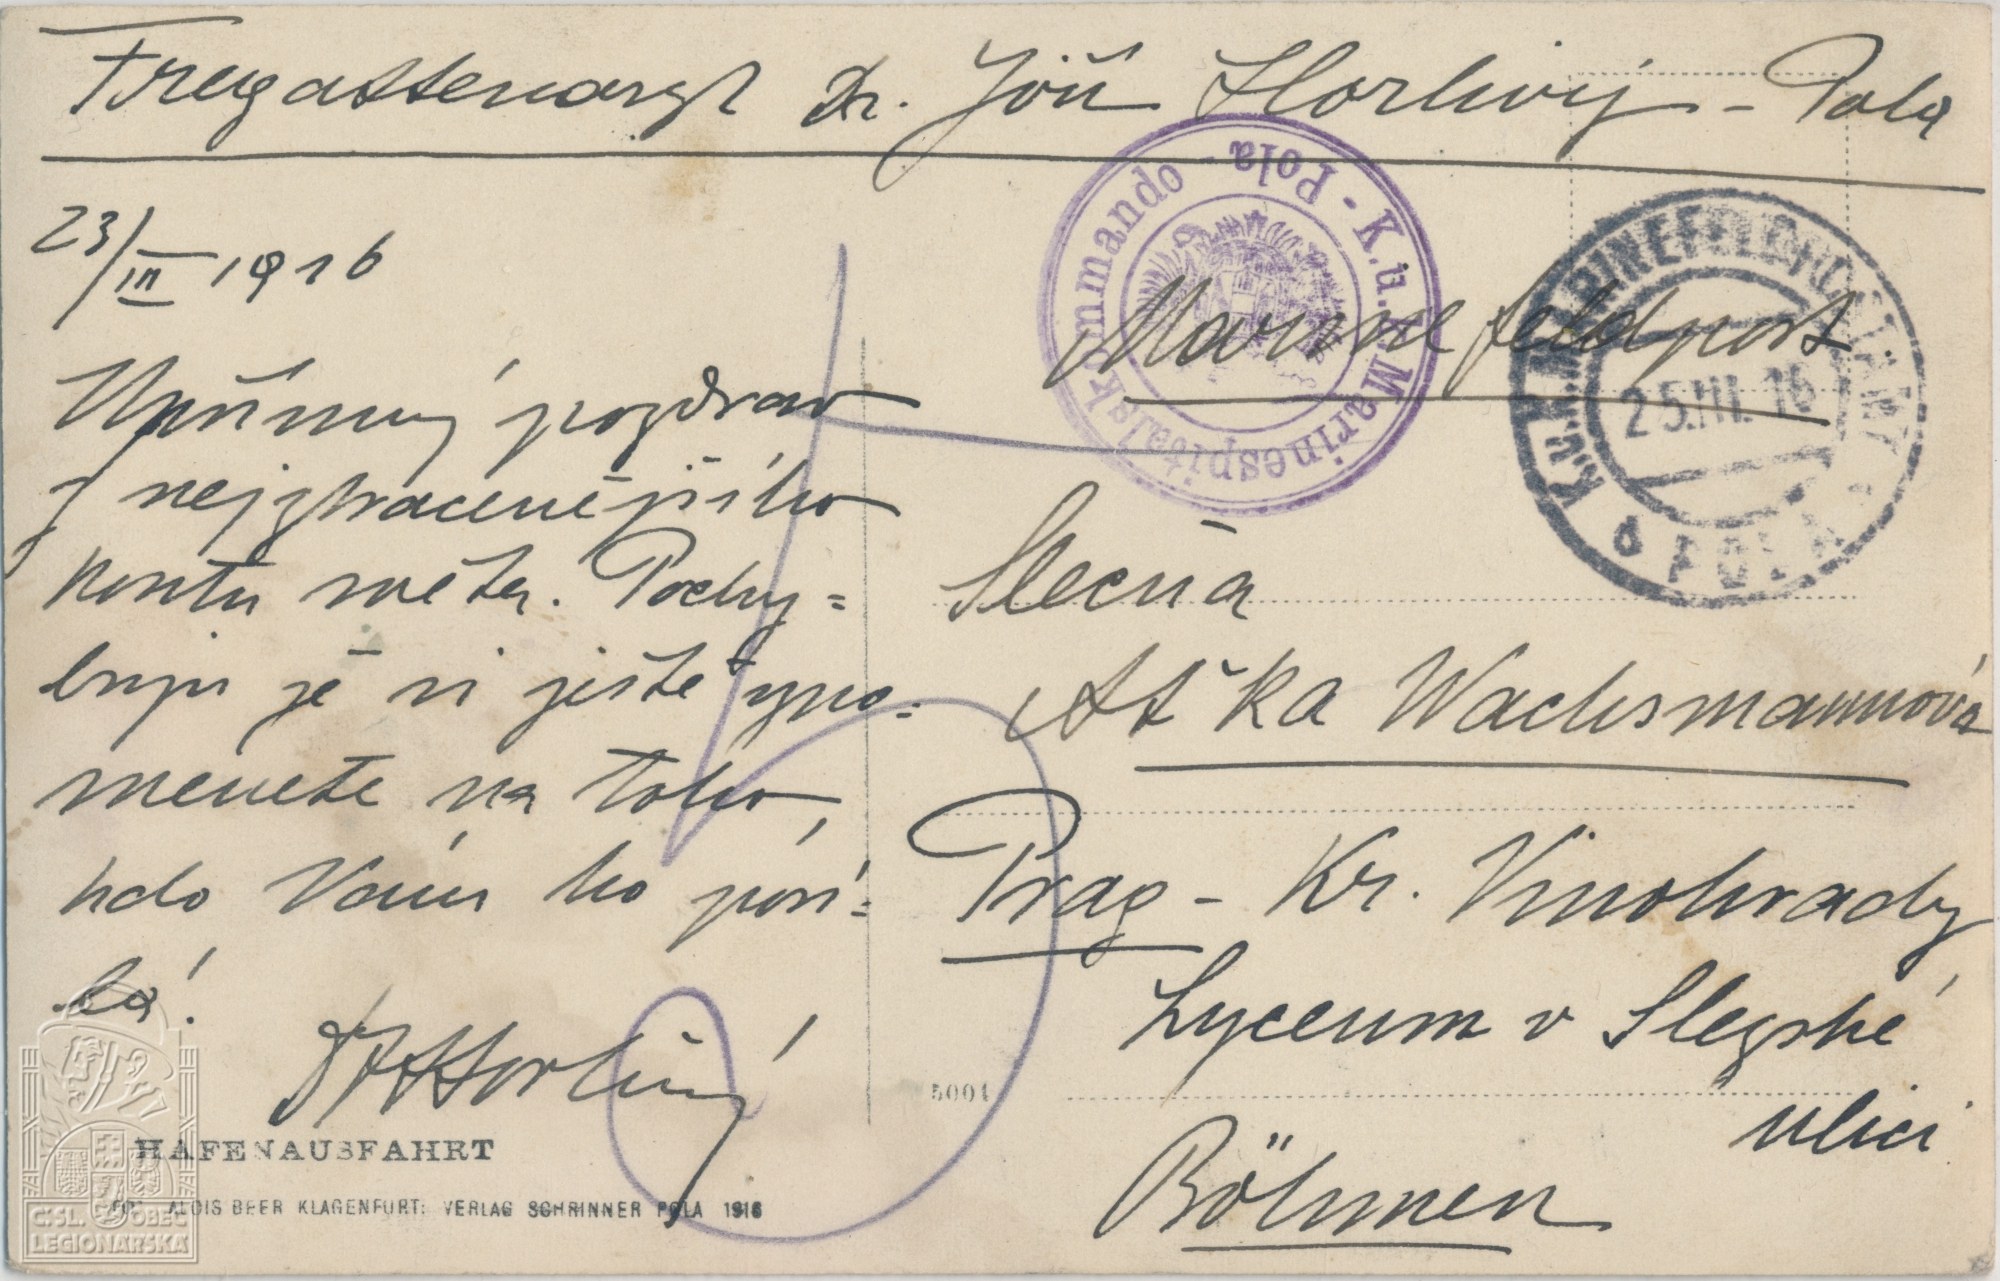 Fregattenarzt Dr. Jiří Horlivý - Pola
23/III 1916
Upřímný pozdrav
z nejztracenějšího
koutu světa. Pochy=
buji že si ještě vzpo=
menete na toho,
kdo Vám ho posí=
lá!
Horlivý
HAFENAUSFAHRT
FOT. ALOIS BEER KLAGENFURT: VERLAG SCHRINNER POLA 1916
5001
K.u.K. Marinespitalskommando - Pola -
K.u.K. MARINEFELDPOSTAMT
25.III.16
POLA
Marinefeldpost
Slečna
Wachsmannová
Prag - Kr. Vinohrady
Lyceum v Slezské
ulici
Böhmen
ČSL. OBEC
LEGIONÁŘSKÁ